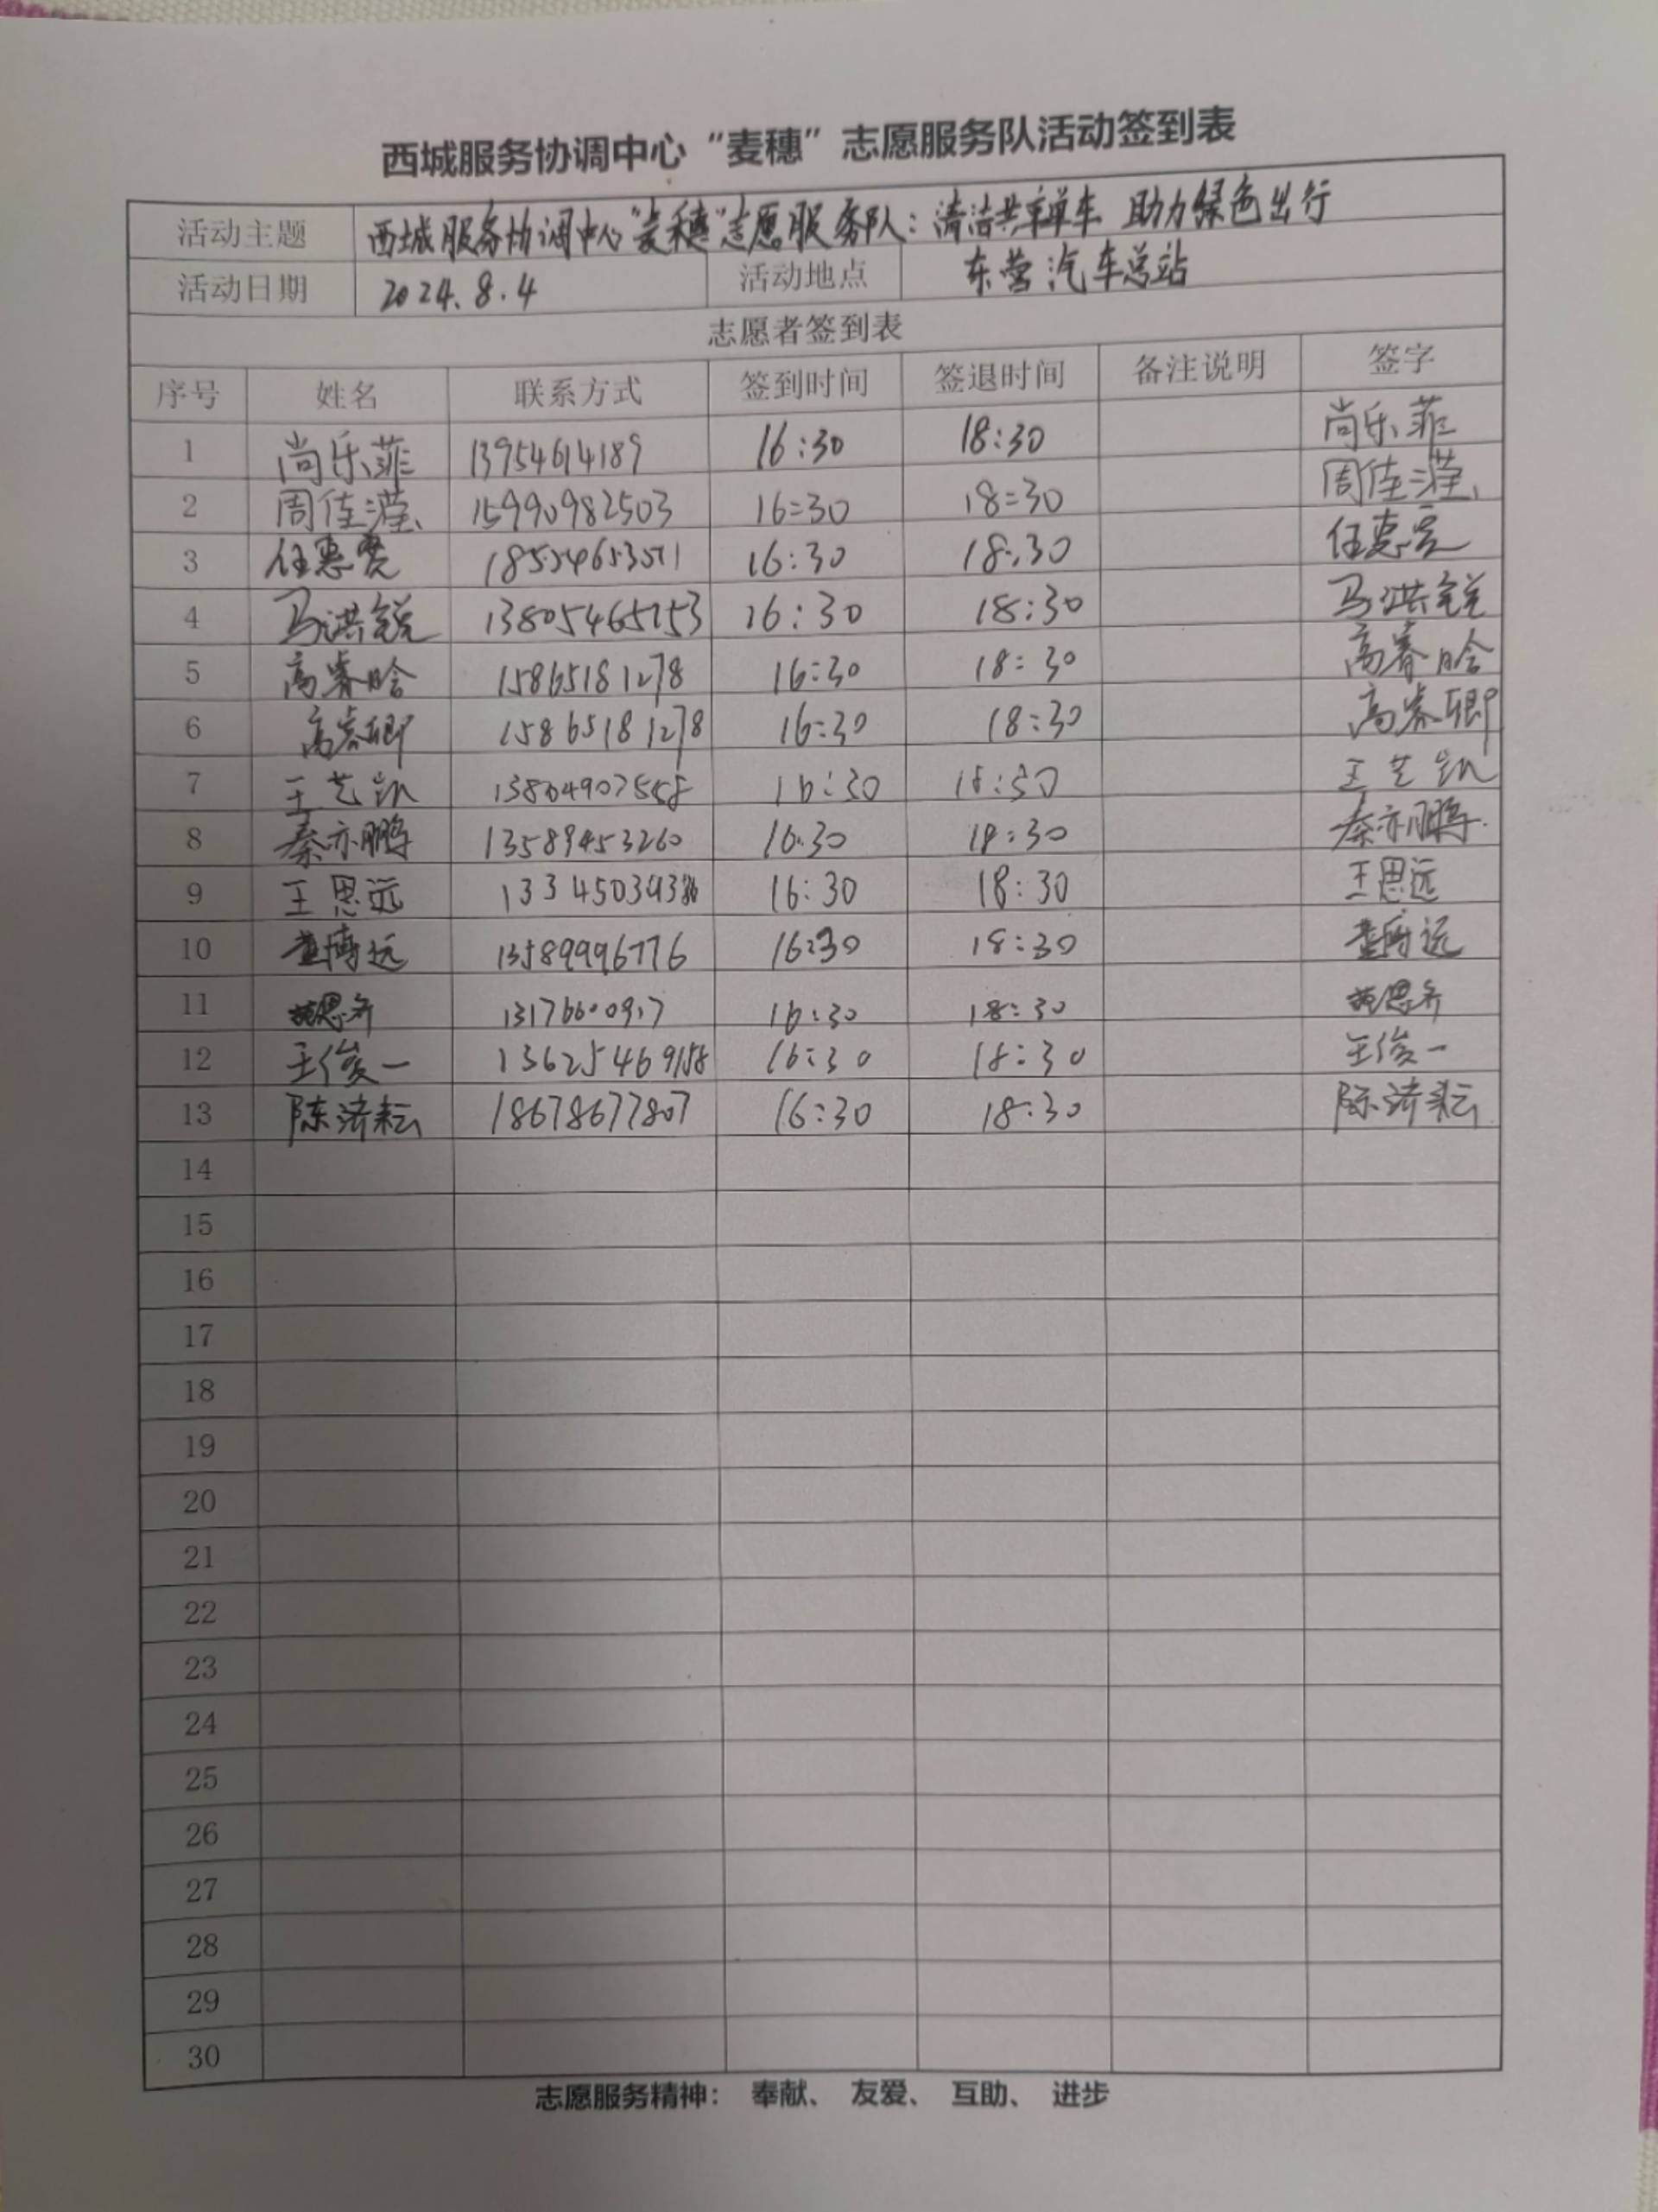 西城服务协调中心“麦穗”志愿服务队活动签到表
活动主题 西城服务协调中心“麦穗”志愿服务队：清洁共享单车 助力绿色出行
活动日期 2024.8.4 活动地点 东营汽车总站
志愿者签到表
序号 姓名 联系方式 签到时间 签退时间 备注说明 签字
1 尚乐菲 13954614189 16:30 18:30 尚乐菲
2 周佳滢 15990982503 16:30 18:30 周佳滢
3 16:30 18:30
4 马洪锐 13805465753 16:30 18:30 马洪锐
5 高睿晗 15865181278 16:30 18:30 高睿晗
6 高睿卿 15865181278 16:30 18:30 高睿卿
7 王艺凯 16:30 18:30 王艺凯
8 秦亦鹏 13589453260 16:30 18:30 秦亦鹏
9 王思远 16:30 18:30 王思远
10 董博远 13589996776 16:30 18:30 董博远
11 16:30 18:30
12 王俊一 13625469158 16:30 18:30 王俊一
13 陈济耘 18678677807 16:30 18:30 陈济耘
14
15
16
17
18
19
20
21
22
23
24
25
26
27
28
29
30
志愿服务精神： 奉献、 友爱、 互助、 进步